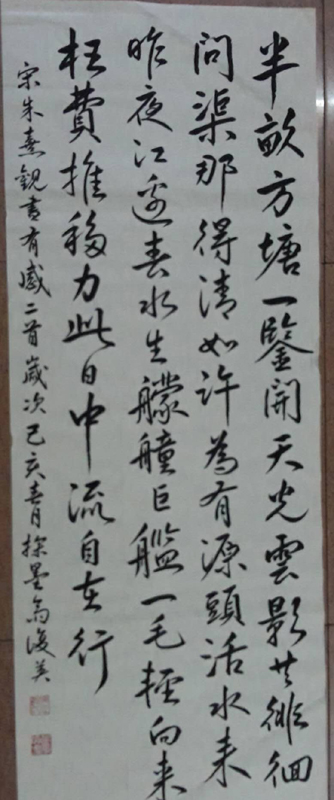 半畝方塘一鑒開天光雲影共徘徊
問渠那得清如許為有源頭活水來
昨夜江邊春水生艨艟巨艦一毛輕向來
枉費推移力此日中流自在行
宋朱熹觀書有感二首歲次己亥春月探墨高俊英